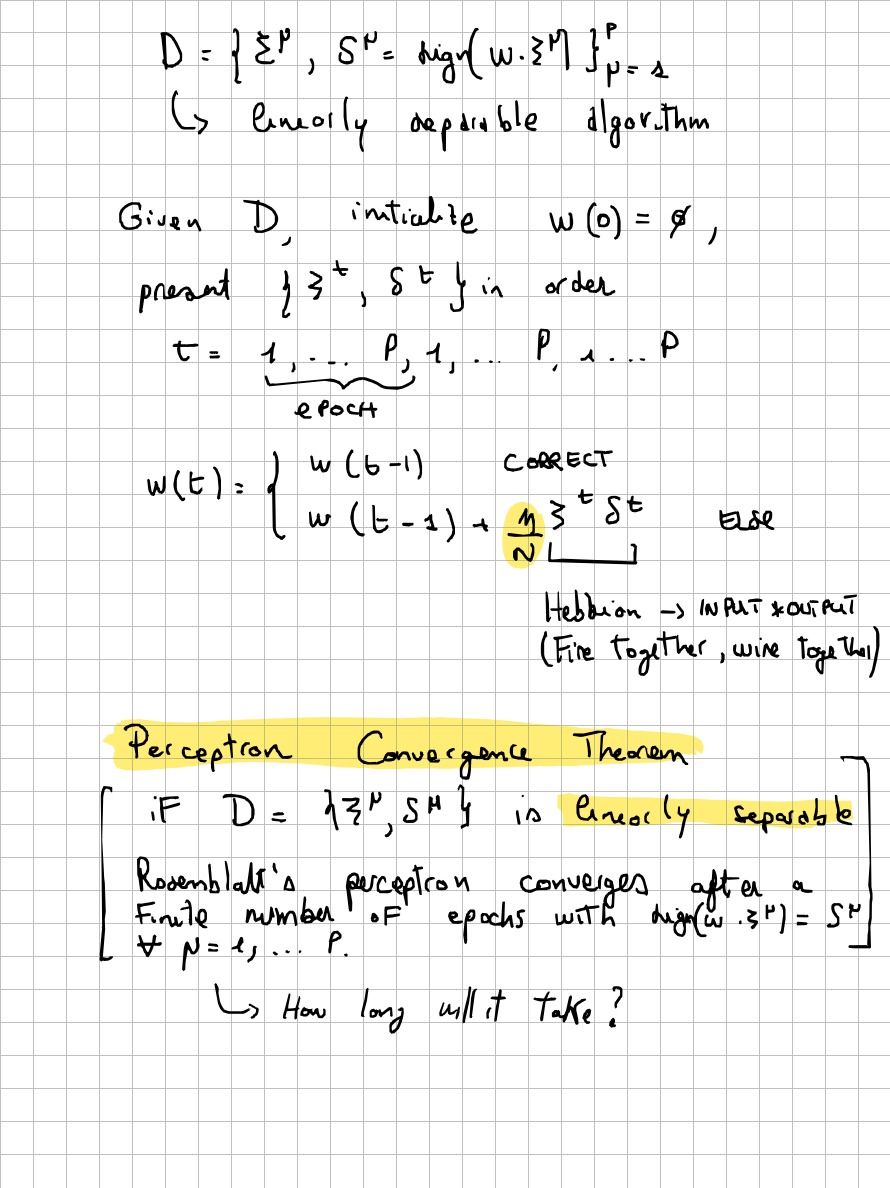 D = { ξ^μ, S^μ = sign(w·ξ^μ) }^P_μ=1
↳ linearly separable algorithm
Given D, initialize w(0) = ∅,
present { ξ^t, S^t } in order
t = 1, ... P, 1, ... P, 1 ... P
EPOCH
w(t) = { w(t-1) CORRECT
w(t-1) + η/N ξ^t S^t ELSE
Hebbian → INPUT * OUTPUT
(Fire together, wire together)
Perceptron Convergence Theorem
iF D = { ξ^μ, S^μ } is linearly separable
Rosenblatt's perceptron converges after a
Finite number oF epochs with sign(w·ξ^μ) = S^μ
∀ μ = 1, ... P.
↳ How long will it take?